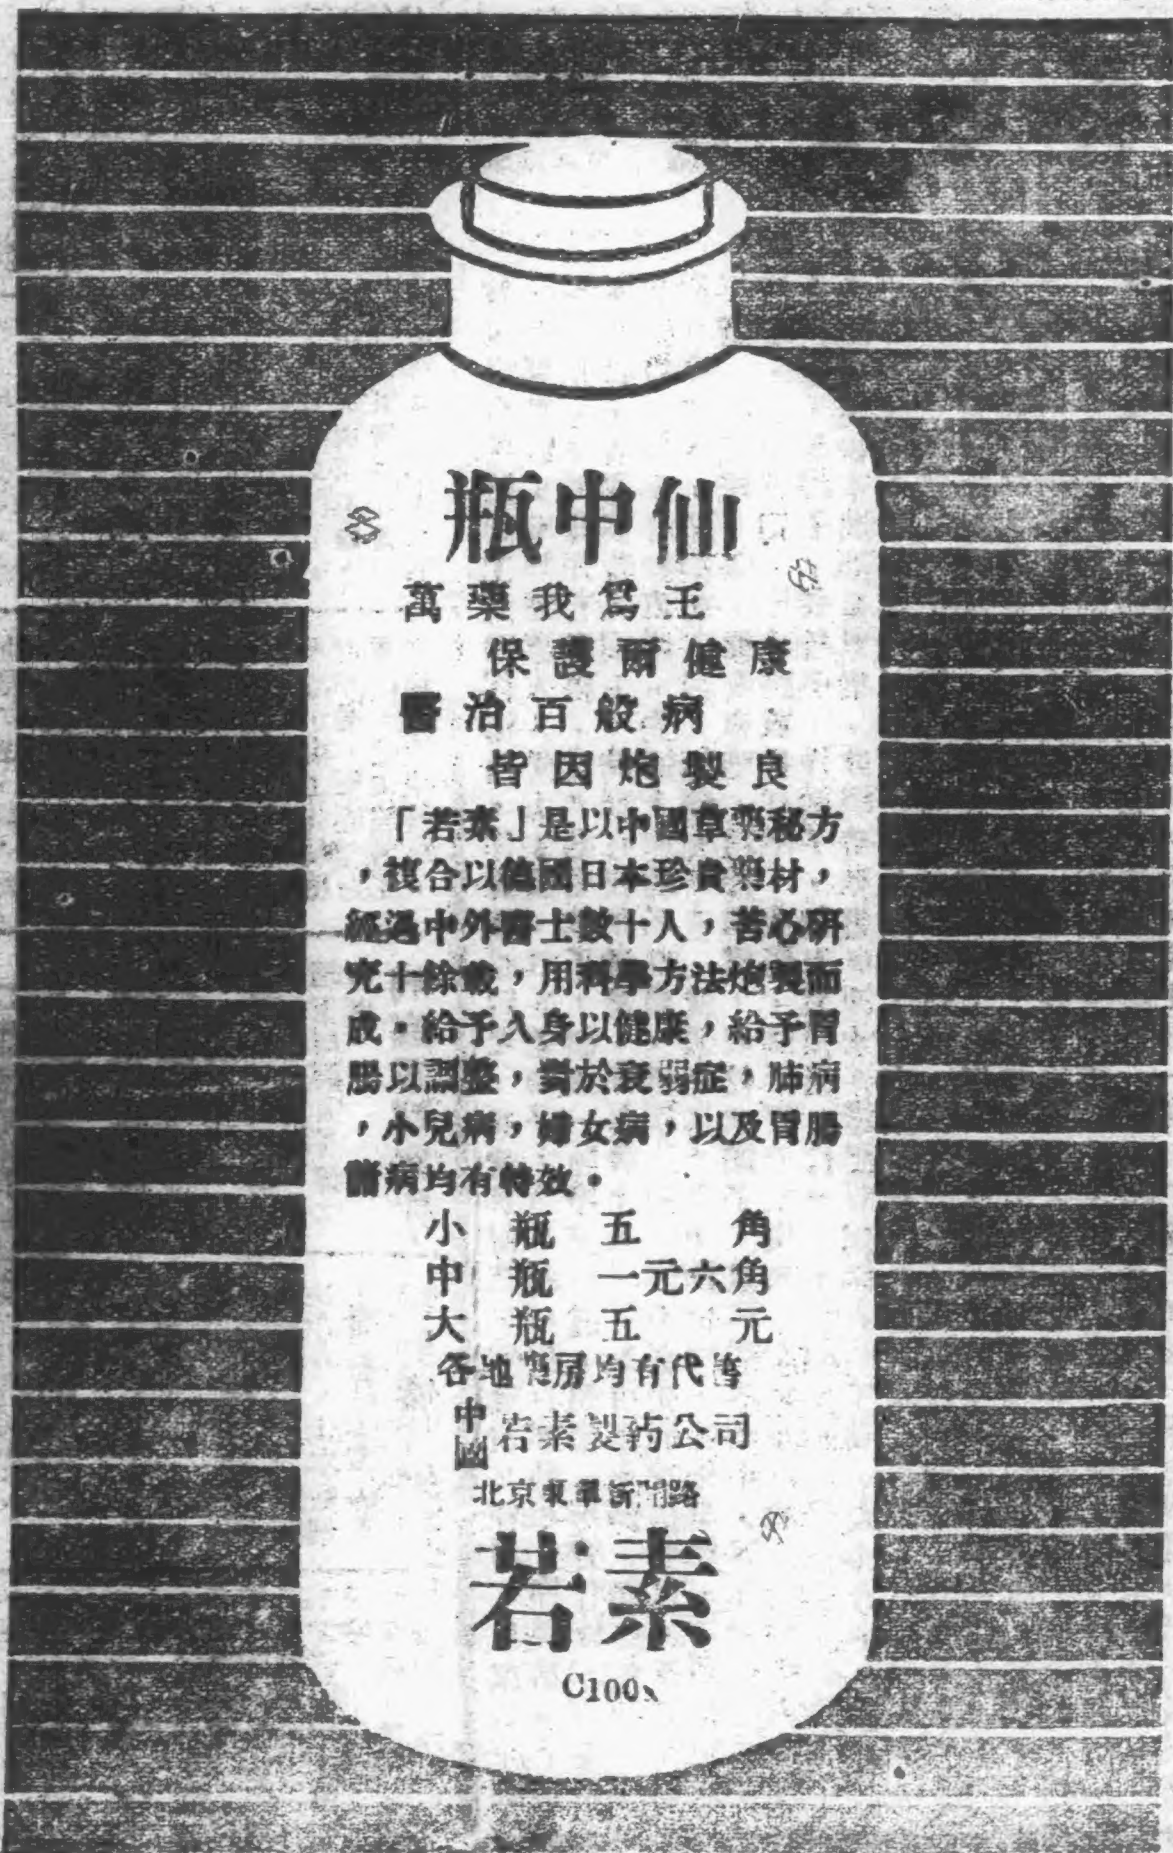 瓶中仙
萬藥我爲王
保護爾健康
醫治百般病
皆因炮製良
「若素」是以中國草藥秘方
，複合以德國日本珍貴藥材，
經過中外醫士數十人，苦心研
究十餘載，用科學方法炮製而
成。給予人身以健康，給予胃
腸以調整，對於衰弱症，肺病
，小兒病，婦女病，以及胃腸
諸病均有特效。
小瓶五角
中瓶一元六角
大瓶五元
各地藥房均有代售
中國若素製药公司
北京東單新開路
若素
C100